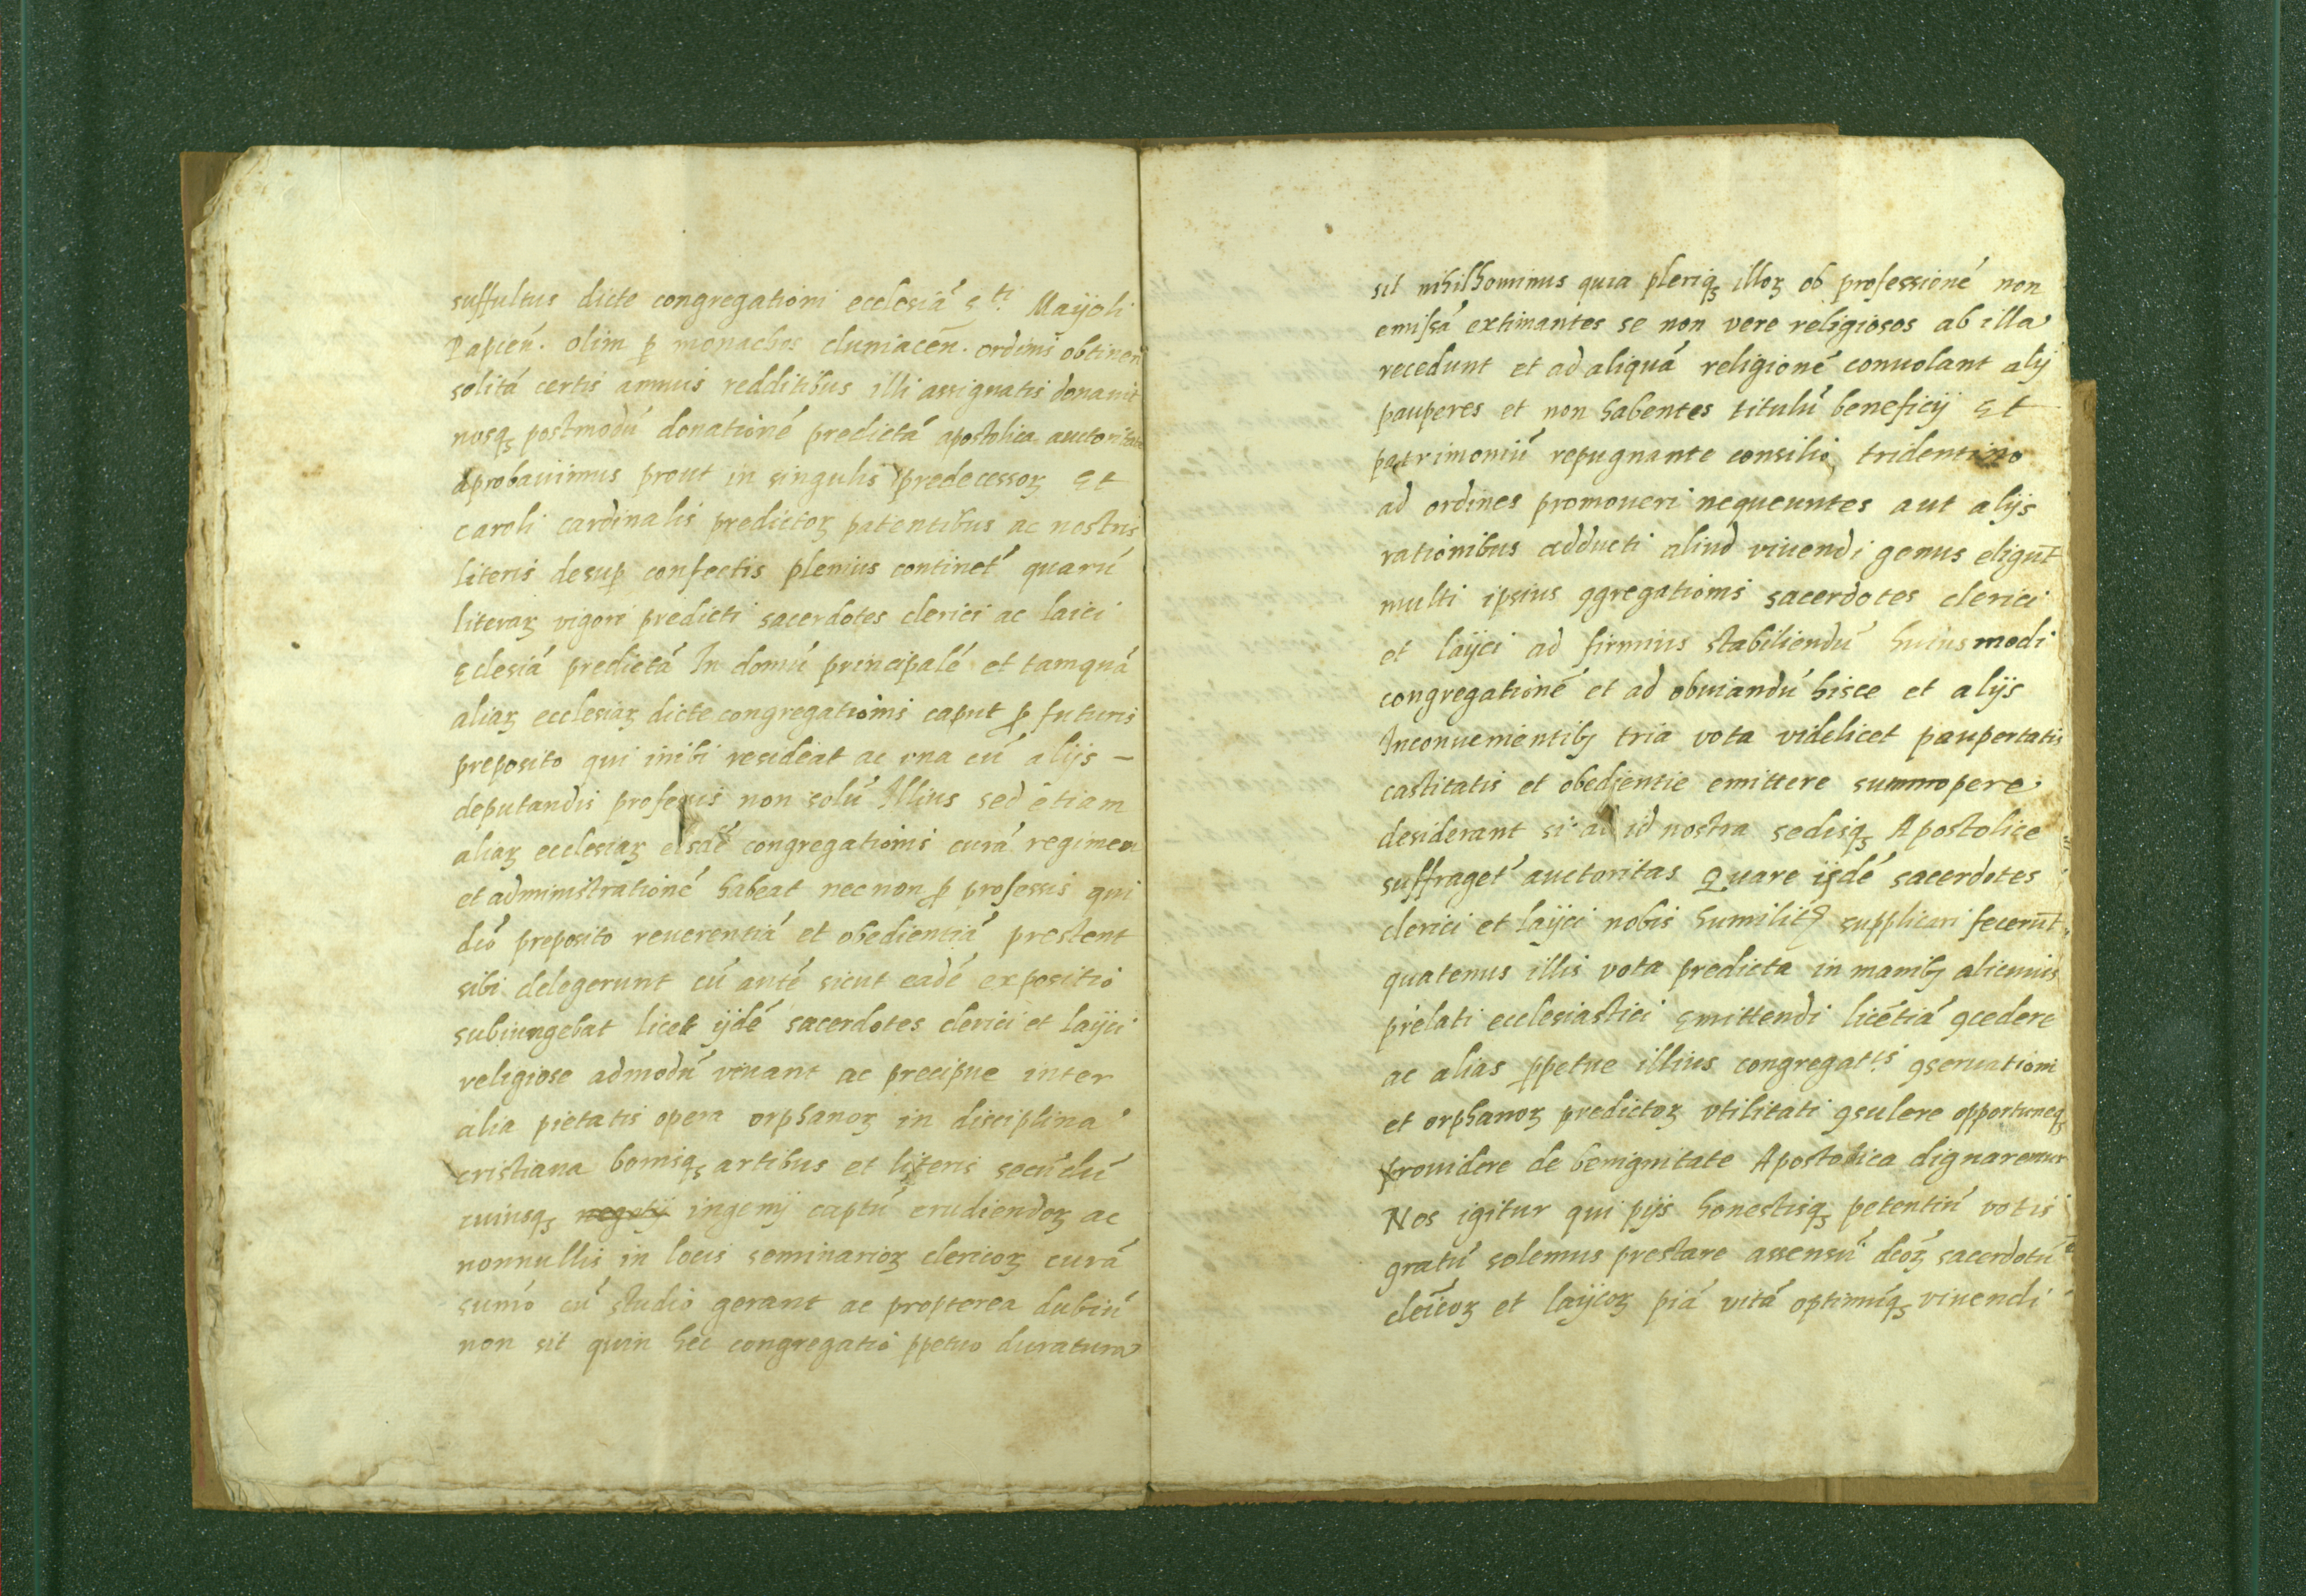 suffultus dicte congregationi ecclesiā S.ti Maijoli
Papień. olim ꝑ monachos cluniaceń. ordinis obtineri
solitā certis annuis redditibus illi assignatis donavit
nosqȝ postmodū donationē predictā apostolica auctoritate
aprobavimus prout in singulis predecessoꝝ Et
caroli cardinalis predictoꝝ patentibus ac nostris
literis desuꝑ confectis plenius continet́ quarū
literaꝝ vigori predicti sacerdotes clerici ac laici
Eclesiā predictā In domū principalē et tamquā
aliaꝝ ecclesiaꝝ dicte congregationis caput ꝓ futuris
preposito qui inibi resideat ac una cū alijs –
deputandis professis non solū Illius sed etiam
aliaꝝ ecclesiaꝝ eisdē congregationis curā regimen
et administrationē habeat nec non ꝓ professis qui
dc̄o preposito reverentiā et obedientiā prestent
sibi delegerunt cū autē sicut eadē expositio
subiungebat licet ijdē sacerdotes clerici et laijci
religiose admodū vivant ac precipue inter
alia pietatis opera orphanoꝝ in disciplina
cristiana bonisqȝ artibus et literis secūdū
cuiusqȝ negotij ingenij captū erudiendoꝝ ac
nonnullis in locis seminarioꝝ clericoꝝ curā
sum̄o cū studio gerant ac propterea dubiū
non sit quin hec congregatio ꝑpetuo duratura
sit nihilhominus quia pleriqȝ illoꝝ ob professionē non
emissā extimantes se non vere religiosos ab illa
recedunt et ad aliquā religionē convolant alij
pauperes et non habentes titulū beneficij Et
patrimoniū repugnante consilio tridentino
ad ordines promoveri nequeuntes aut alijs
rationibus adducti aliud vivendi genus eligūt
multi ipsius ꝯgregationis sacerdotes clerici
et laijci ad firmius stabiliendū huiusmodi
congregationē et ad obviandū hisce et alijs
Inconvenientibȝ tria vota videlicet paupertatis
castitatis et obedientie emittere summopere
desiderant si ad id nostra sedisqȝ Apostolice
suffraget́ auctoritas Quare ijsdē sacerdotes
clerici et laijci nobis humiliṫ supplicari fecerūt
quatenus illis vota predicta in manibȝ alicuius
prelati ecclesiastici Emittendi licētiā ꝯcedere
ac alias ꝑpetue illius congregat.is ꝯservationi
et orphanoꝝ predictoꝝ utilitati ꝯsulere opportuneqȝ
providere de benignitate Apostolica dignaremur
Nos igitur qui pijs honestisqȝ petentiū votis
gratū solemus prestare assensū dc̄oꝝ sacerdotū
cleīcoꝝ et laijcoꝝ piā vitā optimūqȝ vivendi